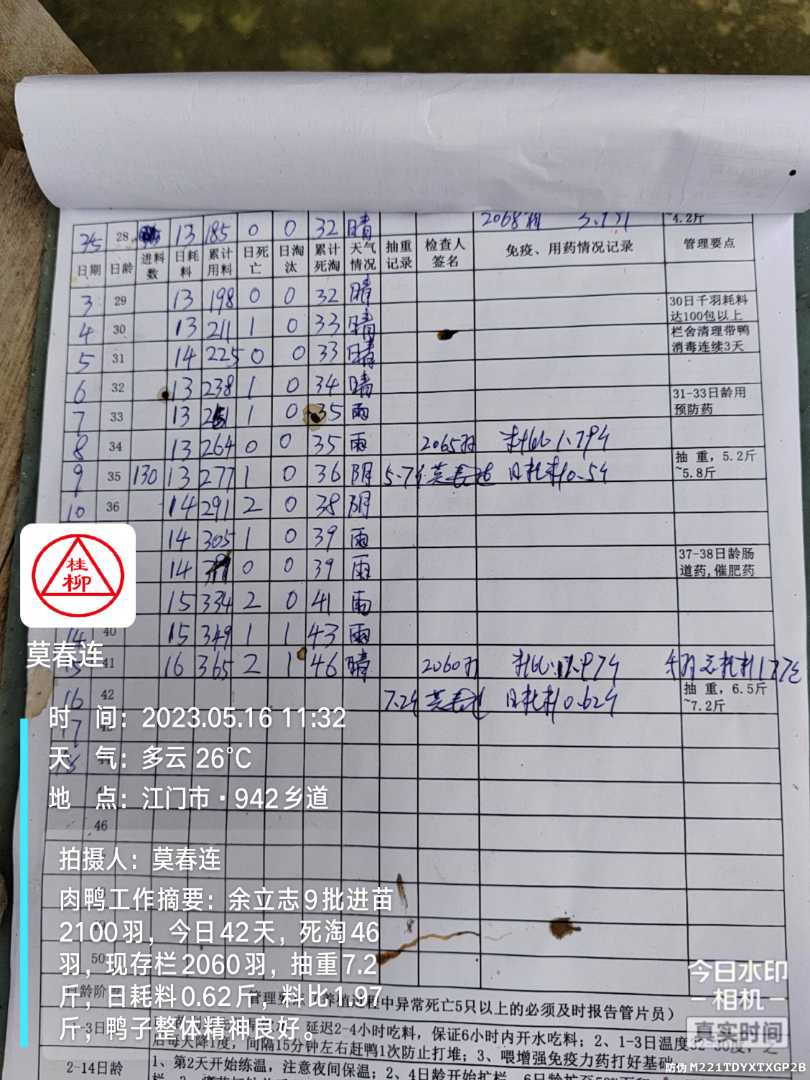 2068羽
4.2斤
3/5 28 13 185 0 0 32 晴
日期 日龄 进料数 日耗料 累计用料 日死亡 日淘汰 累计死淘 天气情况 抽重记录 检查人签名 免疫、用药情况记录 管理要点
3 29 13 198 0 0 32 晴 30日千羽耗料达100包以上
4 30 13 211 1 0 33 晴 栏舍清理带鸭消毒连续3天
5 31 14 225 0 0 33 晴
6 32 13 238 1 0 34 晴 31-33日龄用预防药
7 33 13 251 1 0 35 雨
8 34 13 264 0 0 35 雨 2065羽 料比1.79斤
9 35 130 13 277 1 0 36 阴 5.7斤 莫春连 日耗料0.5斤 抽重，5.2斤~5.8斤
10 36 14 291 2 0 38 阴
14 305 1 0 39 雨
14 0 0 39 雨 37-38日龄肠道药,催肥药
15 334 2 0 41 雨
14 40 15 349 1 1 43 雨
41 16 365 2 1 46 晴 2060羽 料比1.97斤
16 42 7.2斤 莫春连 日耗料0.62斤 抽重，6.5斤~7.2斤
17
46
50
桂柳
莫春连
时 间：2023.05.16 11:32
天 气：多云 26℃
地 点：江门市·942乡道
拍摄人：莫春连
肉鸭工作摘要：余立志9批进苗
2100羽，今日42天，死淘46
羽，现存栏2060羽，抽重7.2
斤，日耗料0.62斤，料比1.97
斤，鸭子整体精神良好。
今日水印
相机
真实时间
防伪 M221TDYXTXGP2B
日龄阶 管理 程中异常死亡5只以上的必须及时报告管片员）
1-3日 延迟2-4小时吃料，保证6小时内开水吃料；2、1-3日温度
后每天降1度，间隔15分钟左右赶鸭1次防止打堆；3、喂增强免疫力药打好基础
2-14日龄 1、第2天开始练温，注意夜间保温；2、4日龄开始扩栏